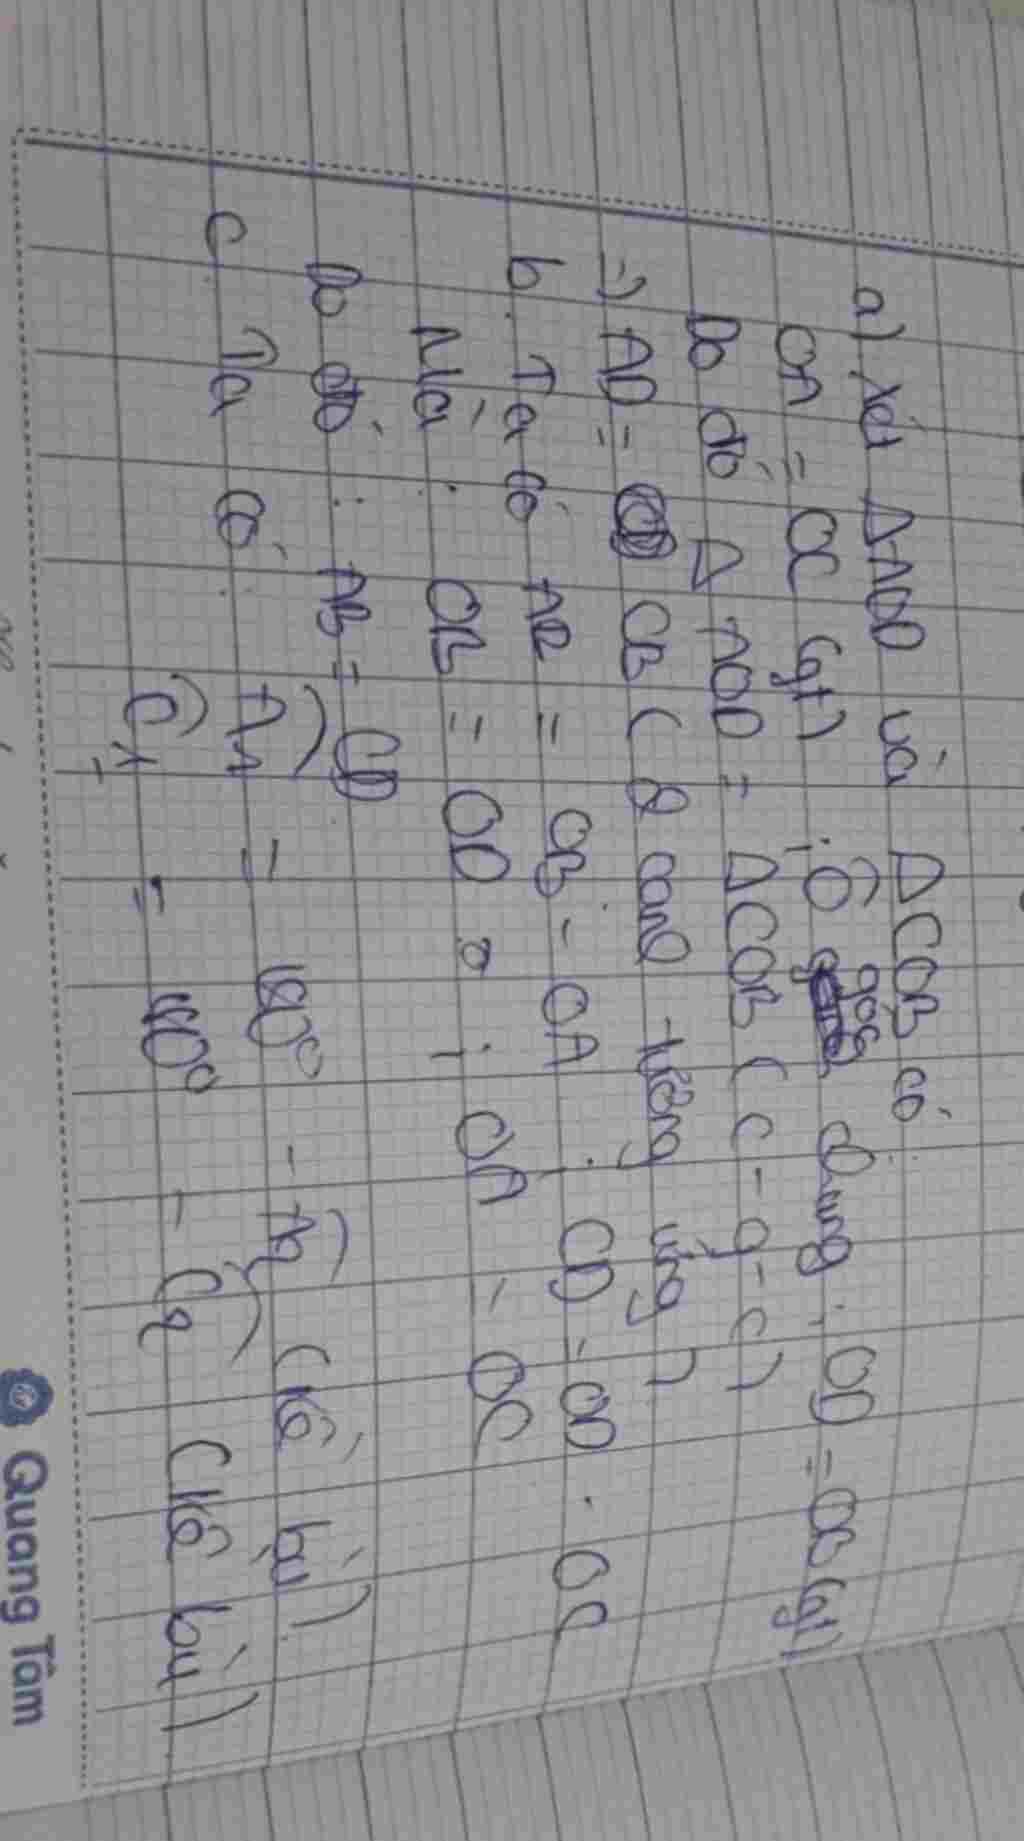 a) Xét ΔAOD và ΔCOB có
OA = OC (gt) ; Ô góc chung . OD = OB (gt)
Do đó Δ AOD = ΔCOB (c-g-c)
=) AD = CB (2 cạnh tương ứng)
b. Ta có AB = OB - OA . CD = OD - OC
Mà : OB = OD ; OA = OC
Do đó : AB = CD
c Ta có : A1 = 180° - A2 (kề bù)
C1 = 180° - C2 (kề bù)
Quang Tâm